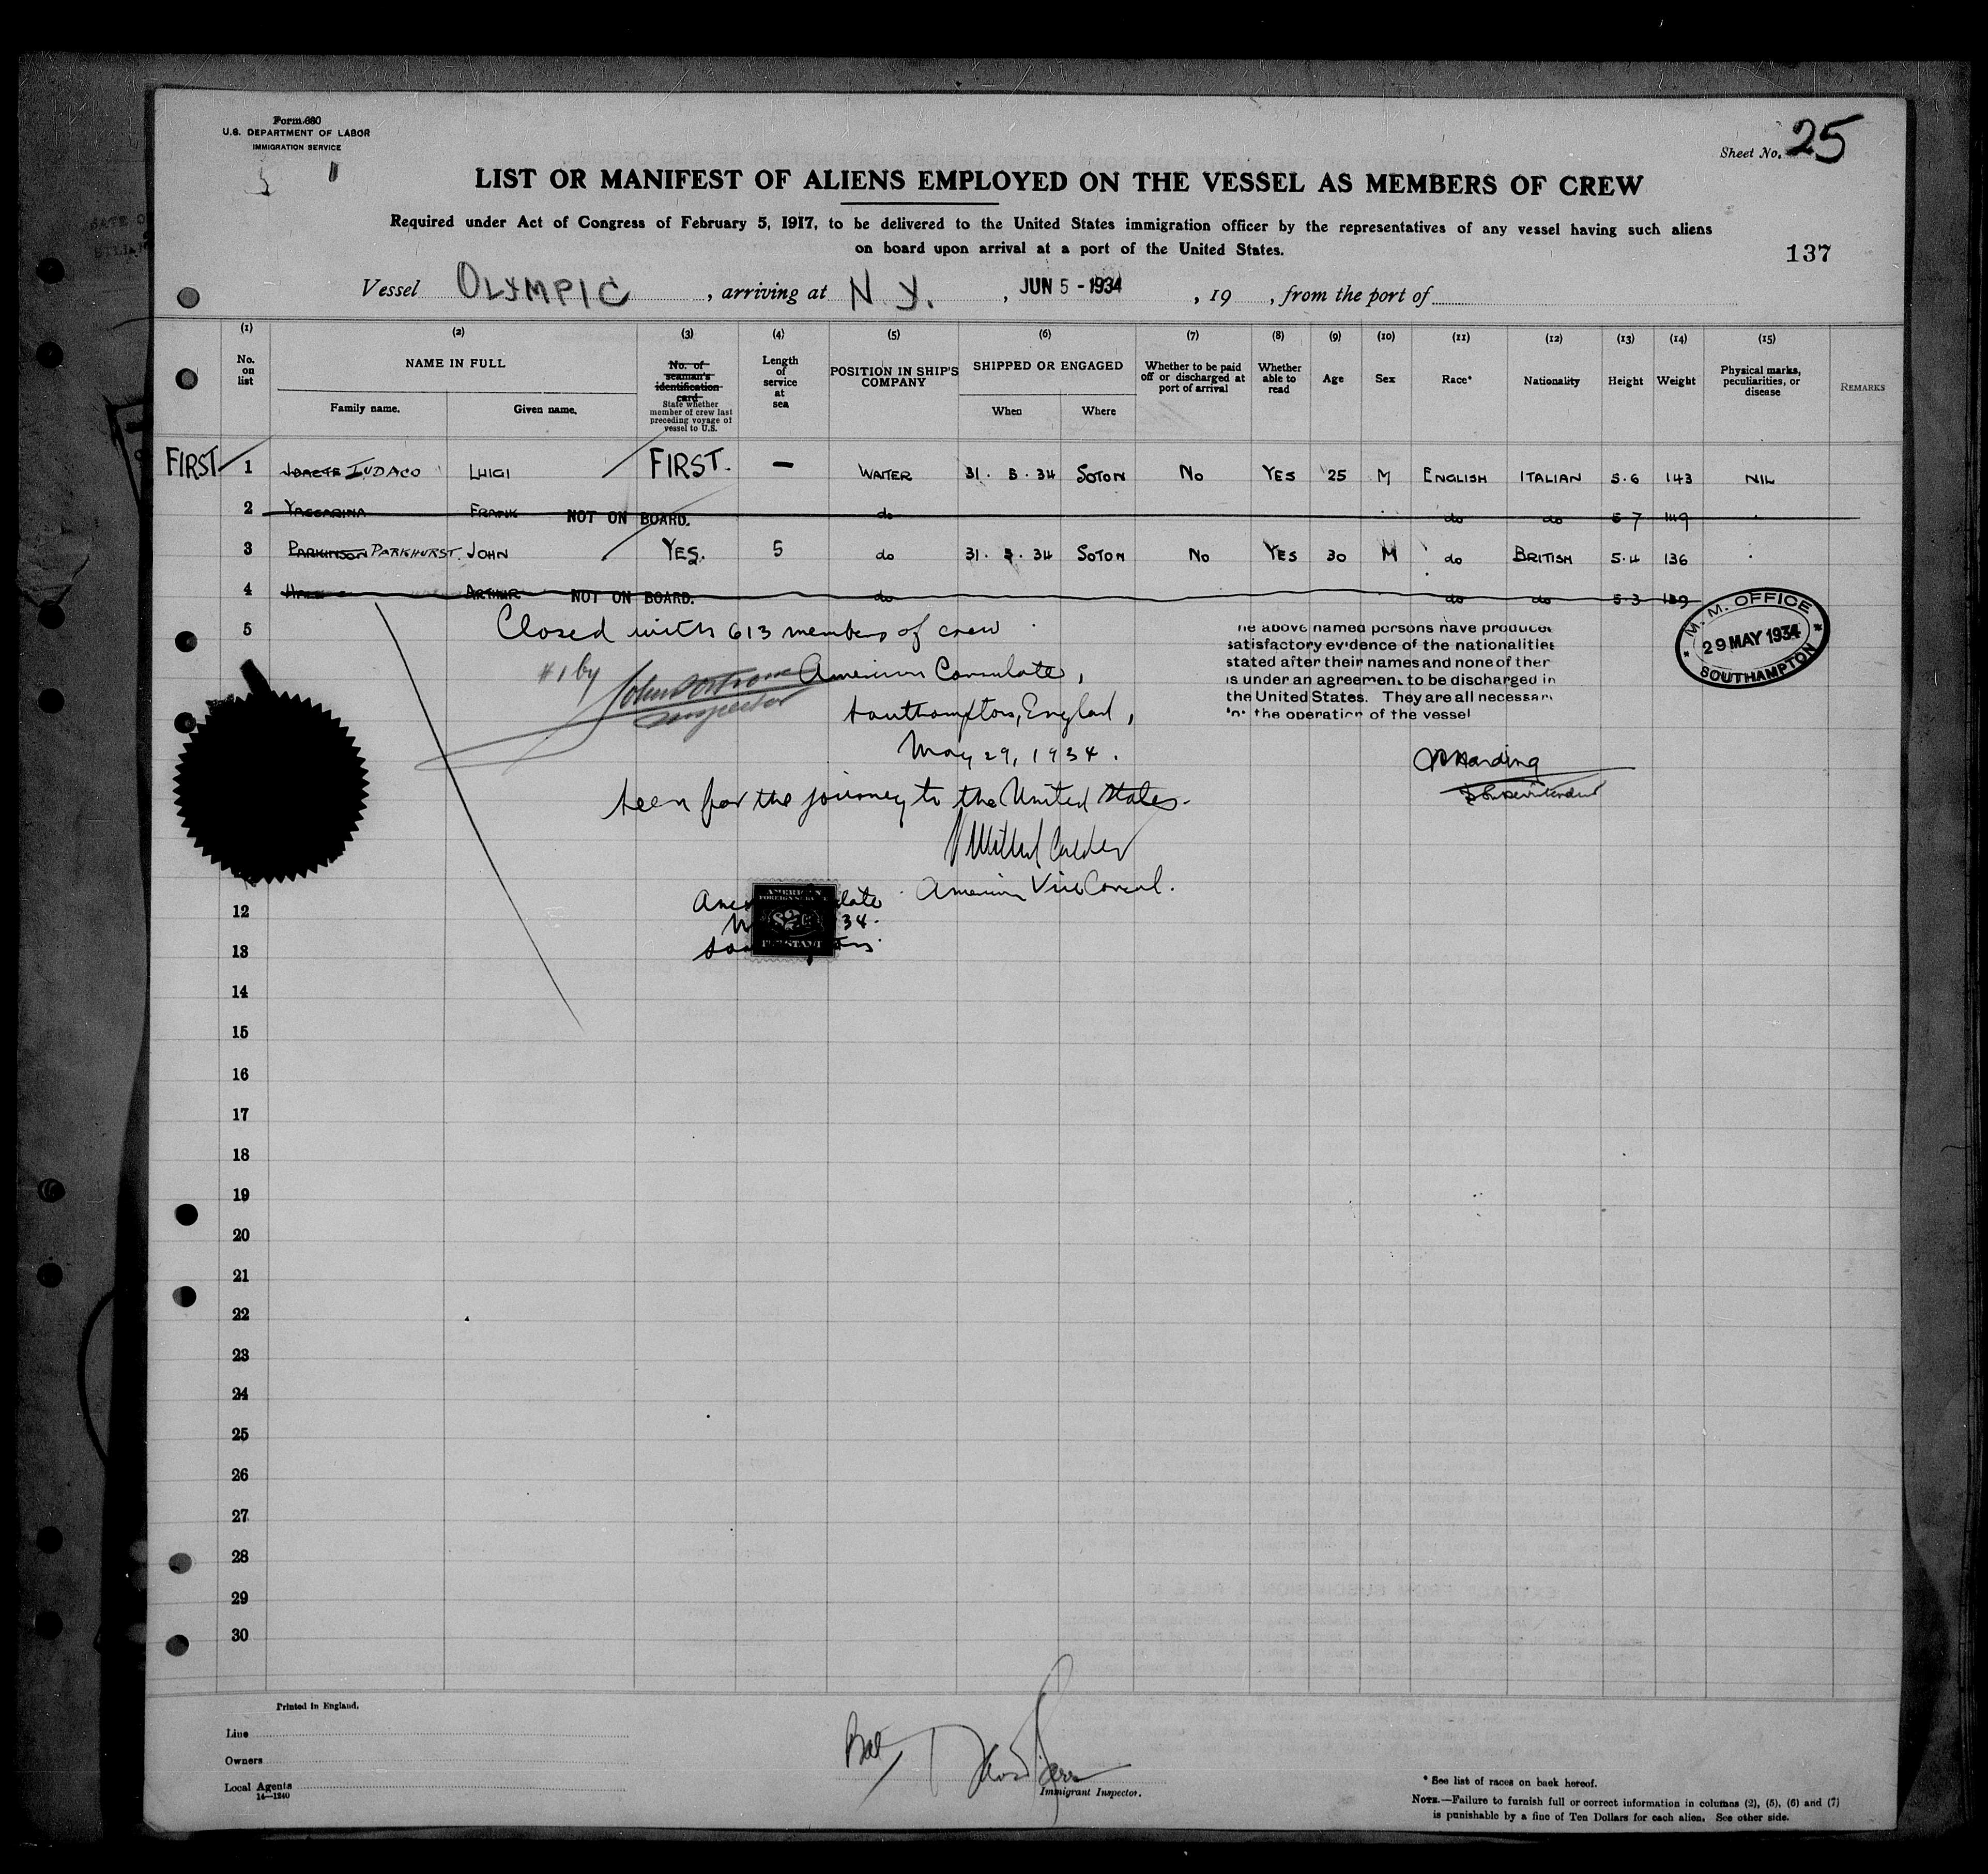 Form 680
U.S. DEPARTMENT OF LABOR
IMMIGRATION SERVICE
Sheet No. 25
LIST OR MANIFEST OF ALIENS EMPLOYED ON THE VESSEL AS MEMBERS OF CREW
Required under Act of Congress of February 5, 1917, to be delivered to the United States immigration officer by the representatives of any vessel having such aliens
on board upon arrival at a port of the United States.
137
Vessel OLYMPIC, arriving at N.Y., JUN 5 - 1934, 19 , from the port of
(1) (2) (3) (4) (5) (6) (7) (8) (9) (10) (11) (12) (13) (14) (15)
No. on list
NAME IN FULL
Family name. Given name.
No. of seaman's identification card
State whether member of crew last preceding voyage of vessel to U.S.
Length of service at sea
POSITION IN SHIP'S COMPANY
SHIPPED OR ENGAGED
When Where
Whether to be paid off or discharged at port of arrival
Whether able to read
Age
Sex
Race*
Nationality
Height
Weight
Physical marks, peculiarities, or disease
REMARKS
FIRST 1 IUDACO LUIGI FIRST. — WAITER 31. 5. 34 SOTON NO YES 25 M ENGLISH ITALIAN 5.6 143 NIL
2 YACCARINA FRANK NOT ON BOARD. do do do 5 7 149
3 PARKINSON PARKHURST. JOHN YES. 5 do 31. 5. 34 SOTON NO YES 30 M do BRITISH 5.4 136
4 ARTHUR NOT ON BOARD. do do do 5 3 139
5 Closed with 613 members of crew
#1 by
Inspector
American Consulate,
Southampton, England,
May 29, 1934.
Seen for the journey to the United States.
American Vice Consul.
he above named persons have produced
satisfactory evidence of the nationalities
stated after their names and none of ther
is under an agreement to be discharged in
the United States. They are all necessary
for the operation of the vessel
M. M. OFFICE
29 MAY 1934
SOUTHAMPTON
Harding
Superintendent
AMERICAN
FOREIGN SERVICE
$2
FEE STAMP
34.
12
13
14
15
16
17
18
19
20
21
22
23
24
25
26
27
28
29
30
Printed in England.
Line
Owners
Local Agents
14—1240
Immigrant Inspector.
* See list of races on back hereof.
NOTE.—Failure to furnish full or correct information in columns (2), (5), (6) and (7)
is punishable by a fine of Ten Dollars for each alien. See other side.